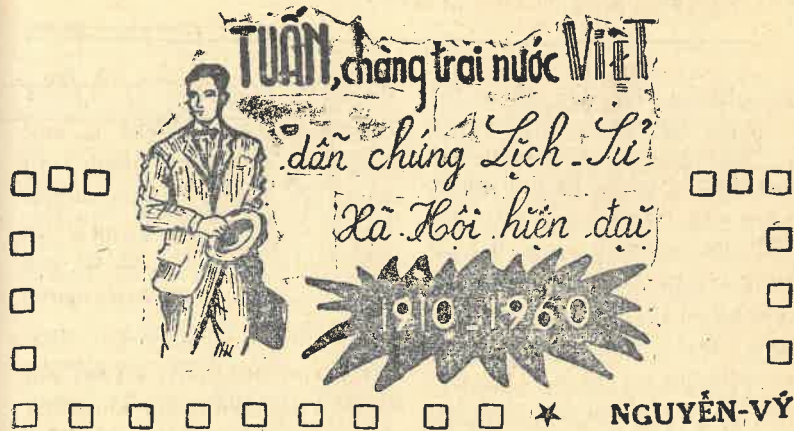 TUẤN, chàng trai nước VIỆT
dẫn chứng Lịch-Sử
Xã Hội hiện đại
1910-1960
NGUYỄN-VỸ